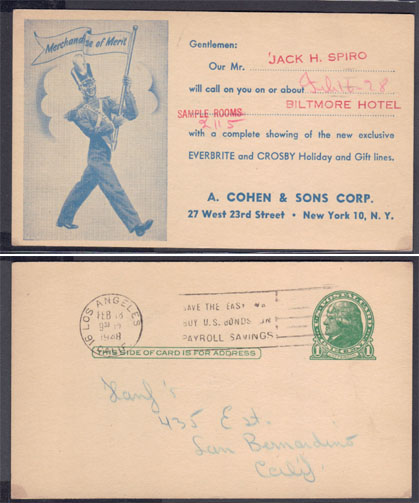 Merchandise of Merit
Gentlemen:
Our Mr. JACK H. SPIRO
will call on you on or about Feb 16-28
BILTMORE HOTEL
SAMPLE ROOMS
with a complete showing of the new exclusive
EVERBRITE and CROSBY Holiday and Gift lines.
A. COHEN & SONS CORP.
27 West 23rd Street • New York 10, N. Y.
LOS ANGELES
FEB
1948
16 CALIF.
SAVE THE EASY WAY
BUY U.S. BONDS
PAYROLL SAVINGS
THIS SIDE OF CARD IS FOR ADDRESS
U.S. POSTAL CARD
1 CENT 1
435 E St.
San Bernardino
Calif